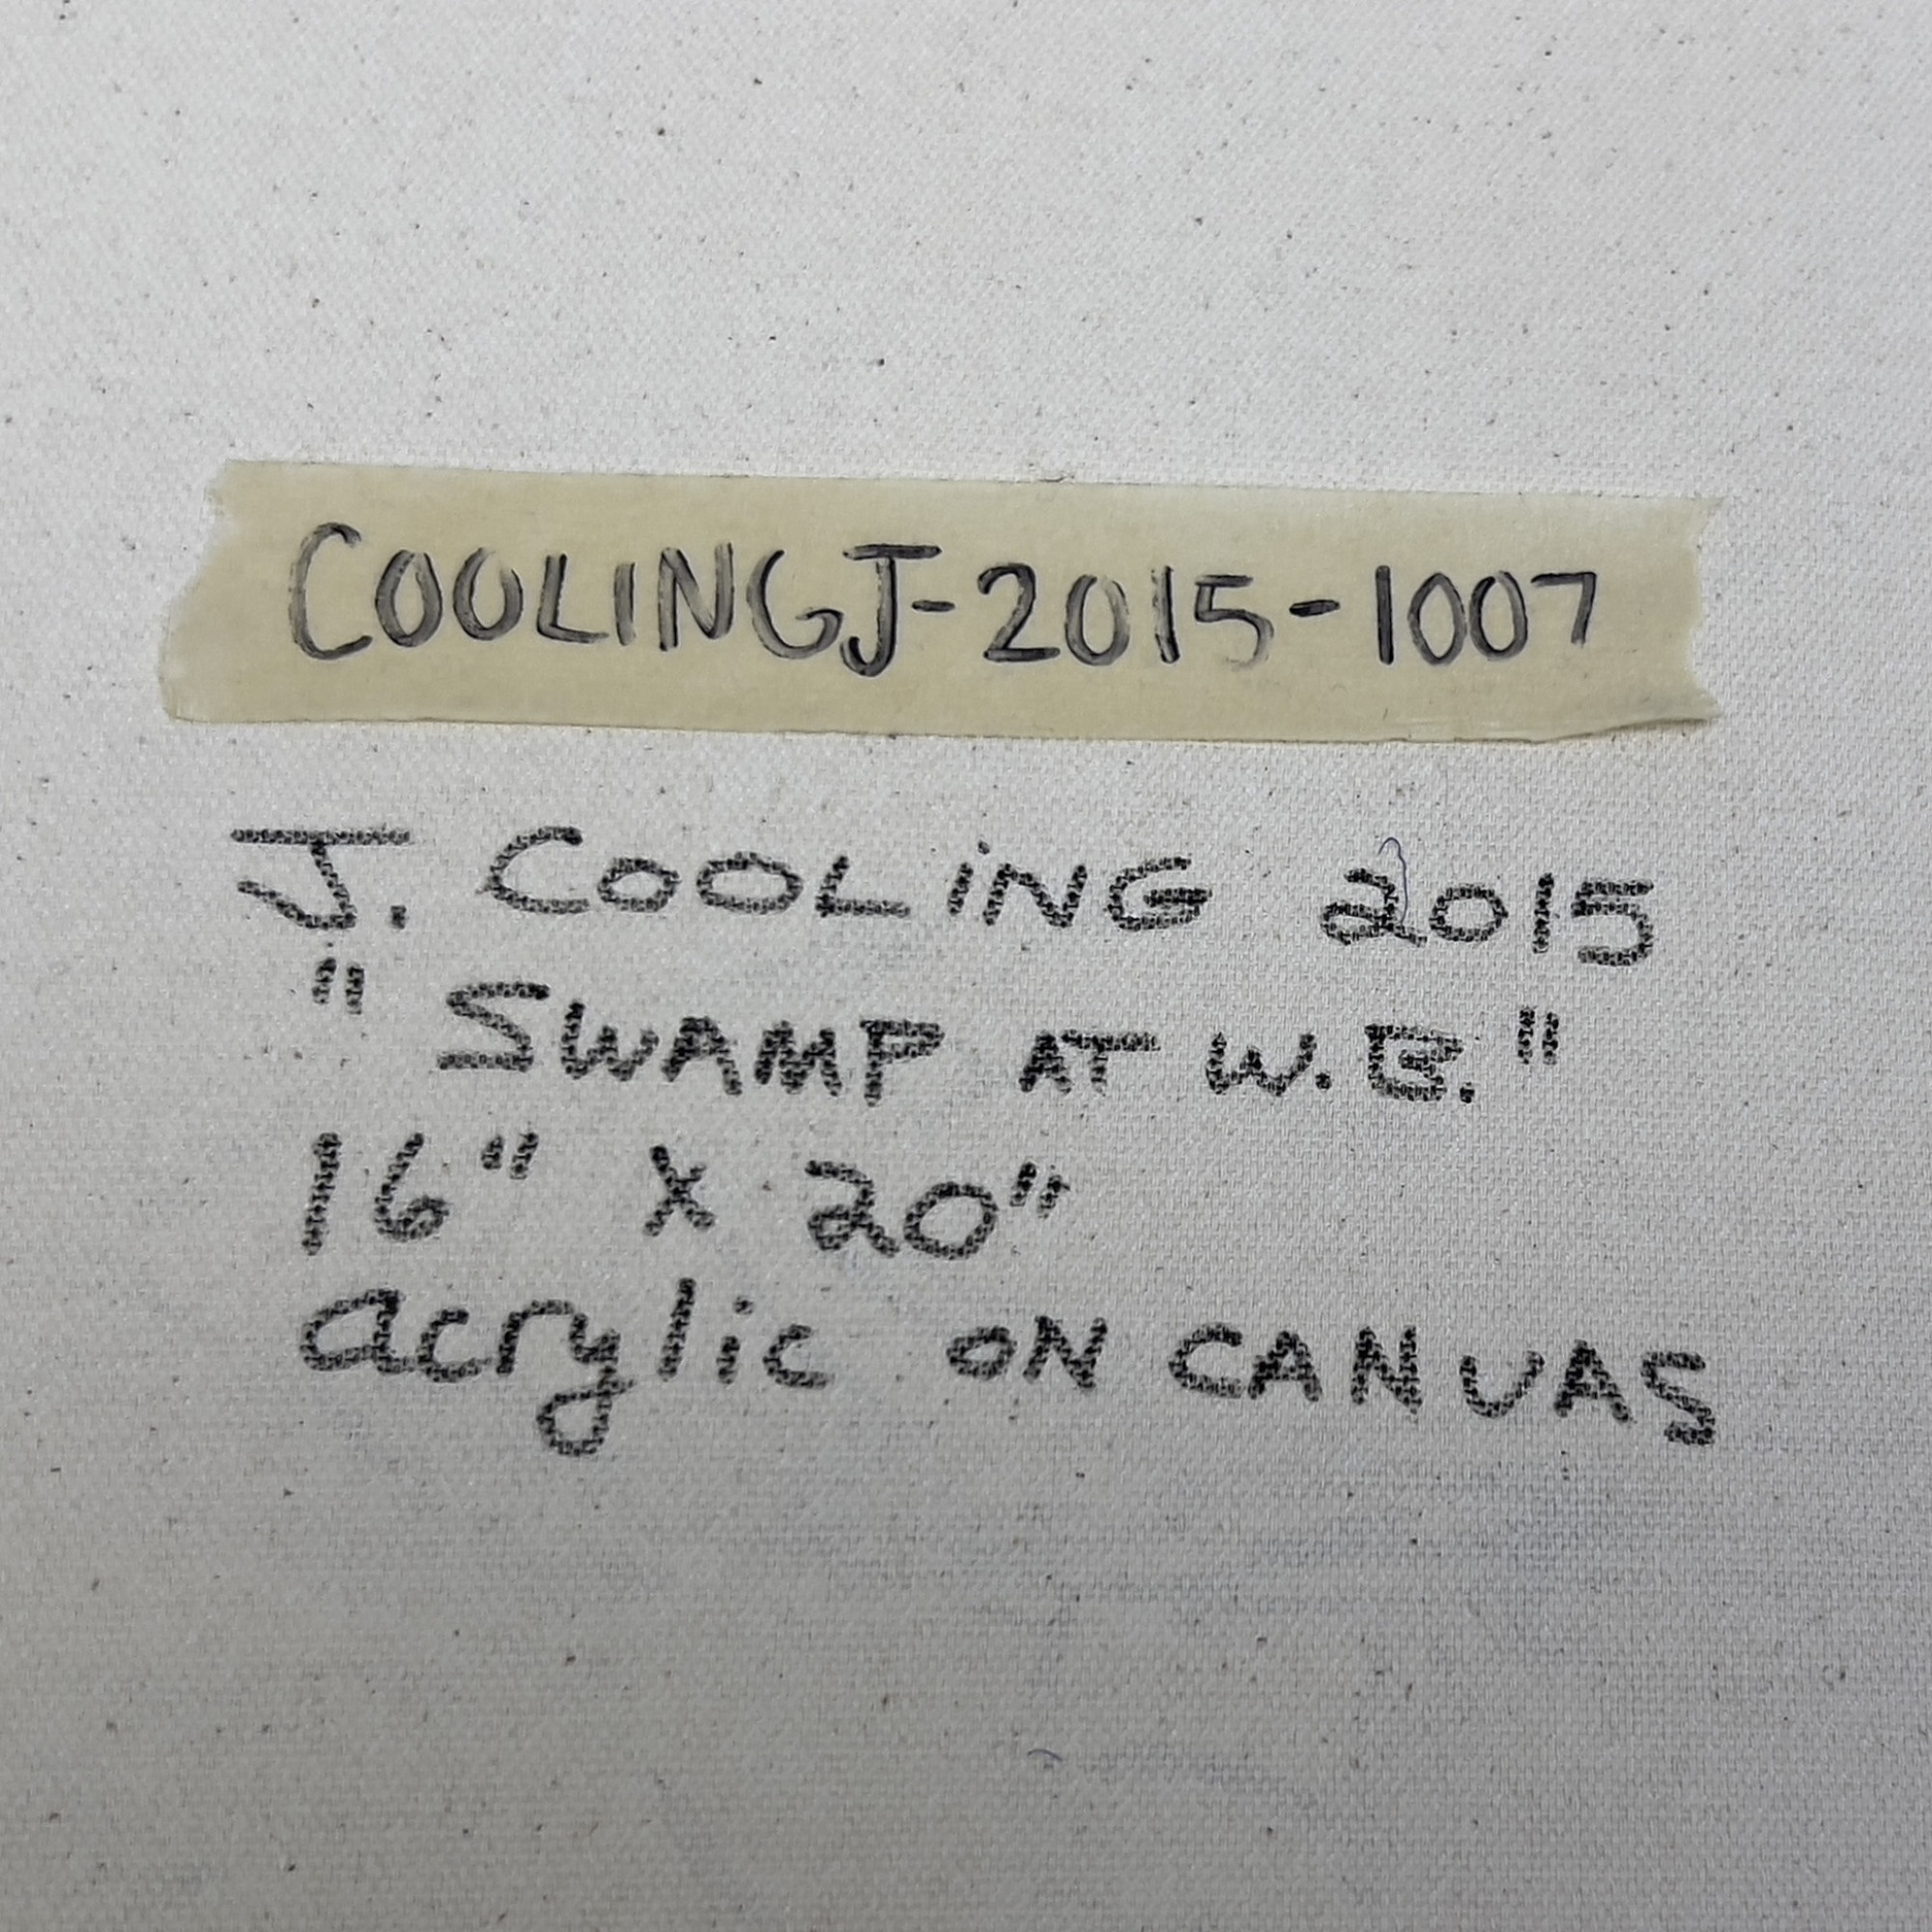 COOLINGJ-2015-1007
J. COOLiNG 2015
"SWAMP AT W.B."
16" X 20"
acrylic ON CANVAS